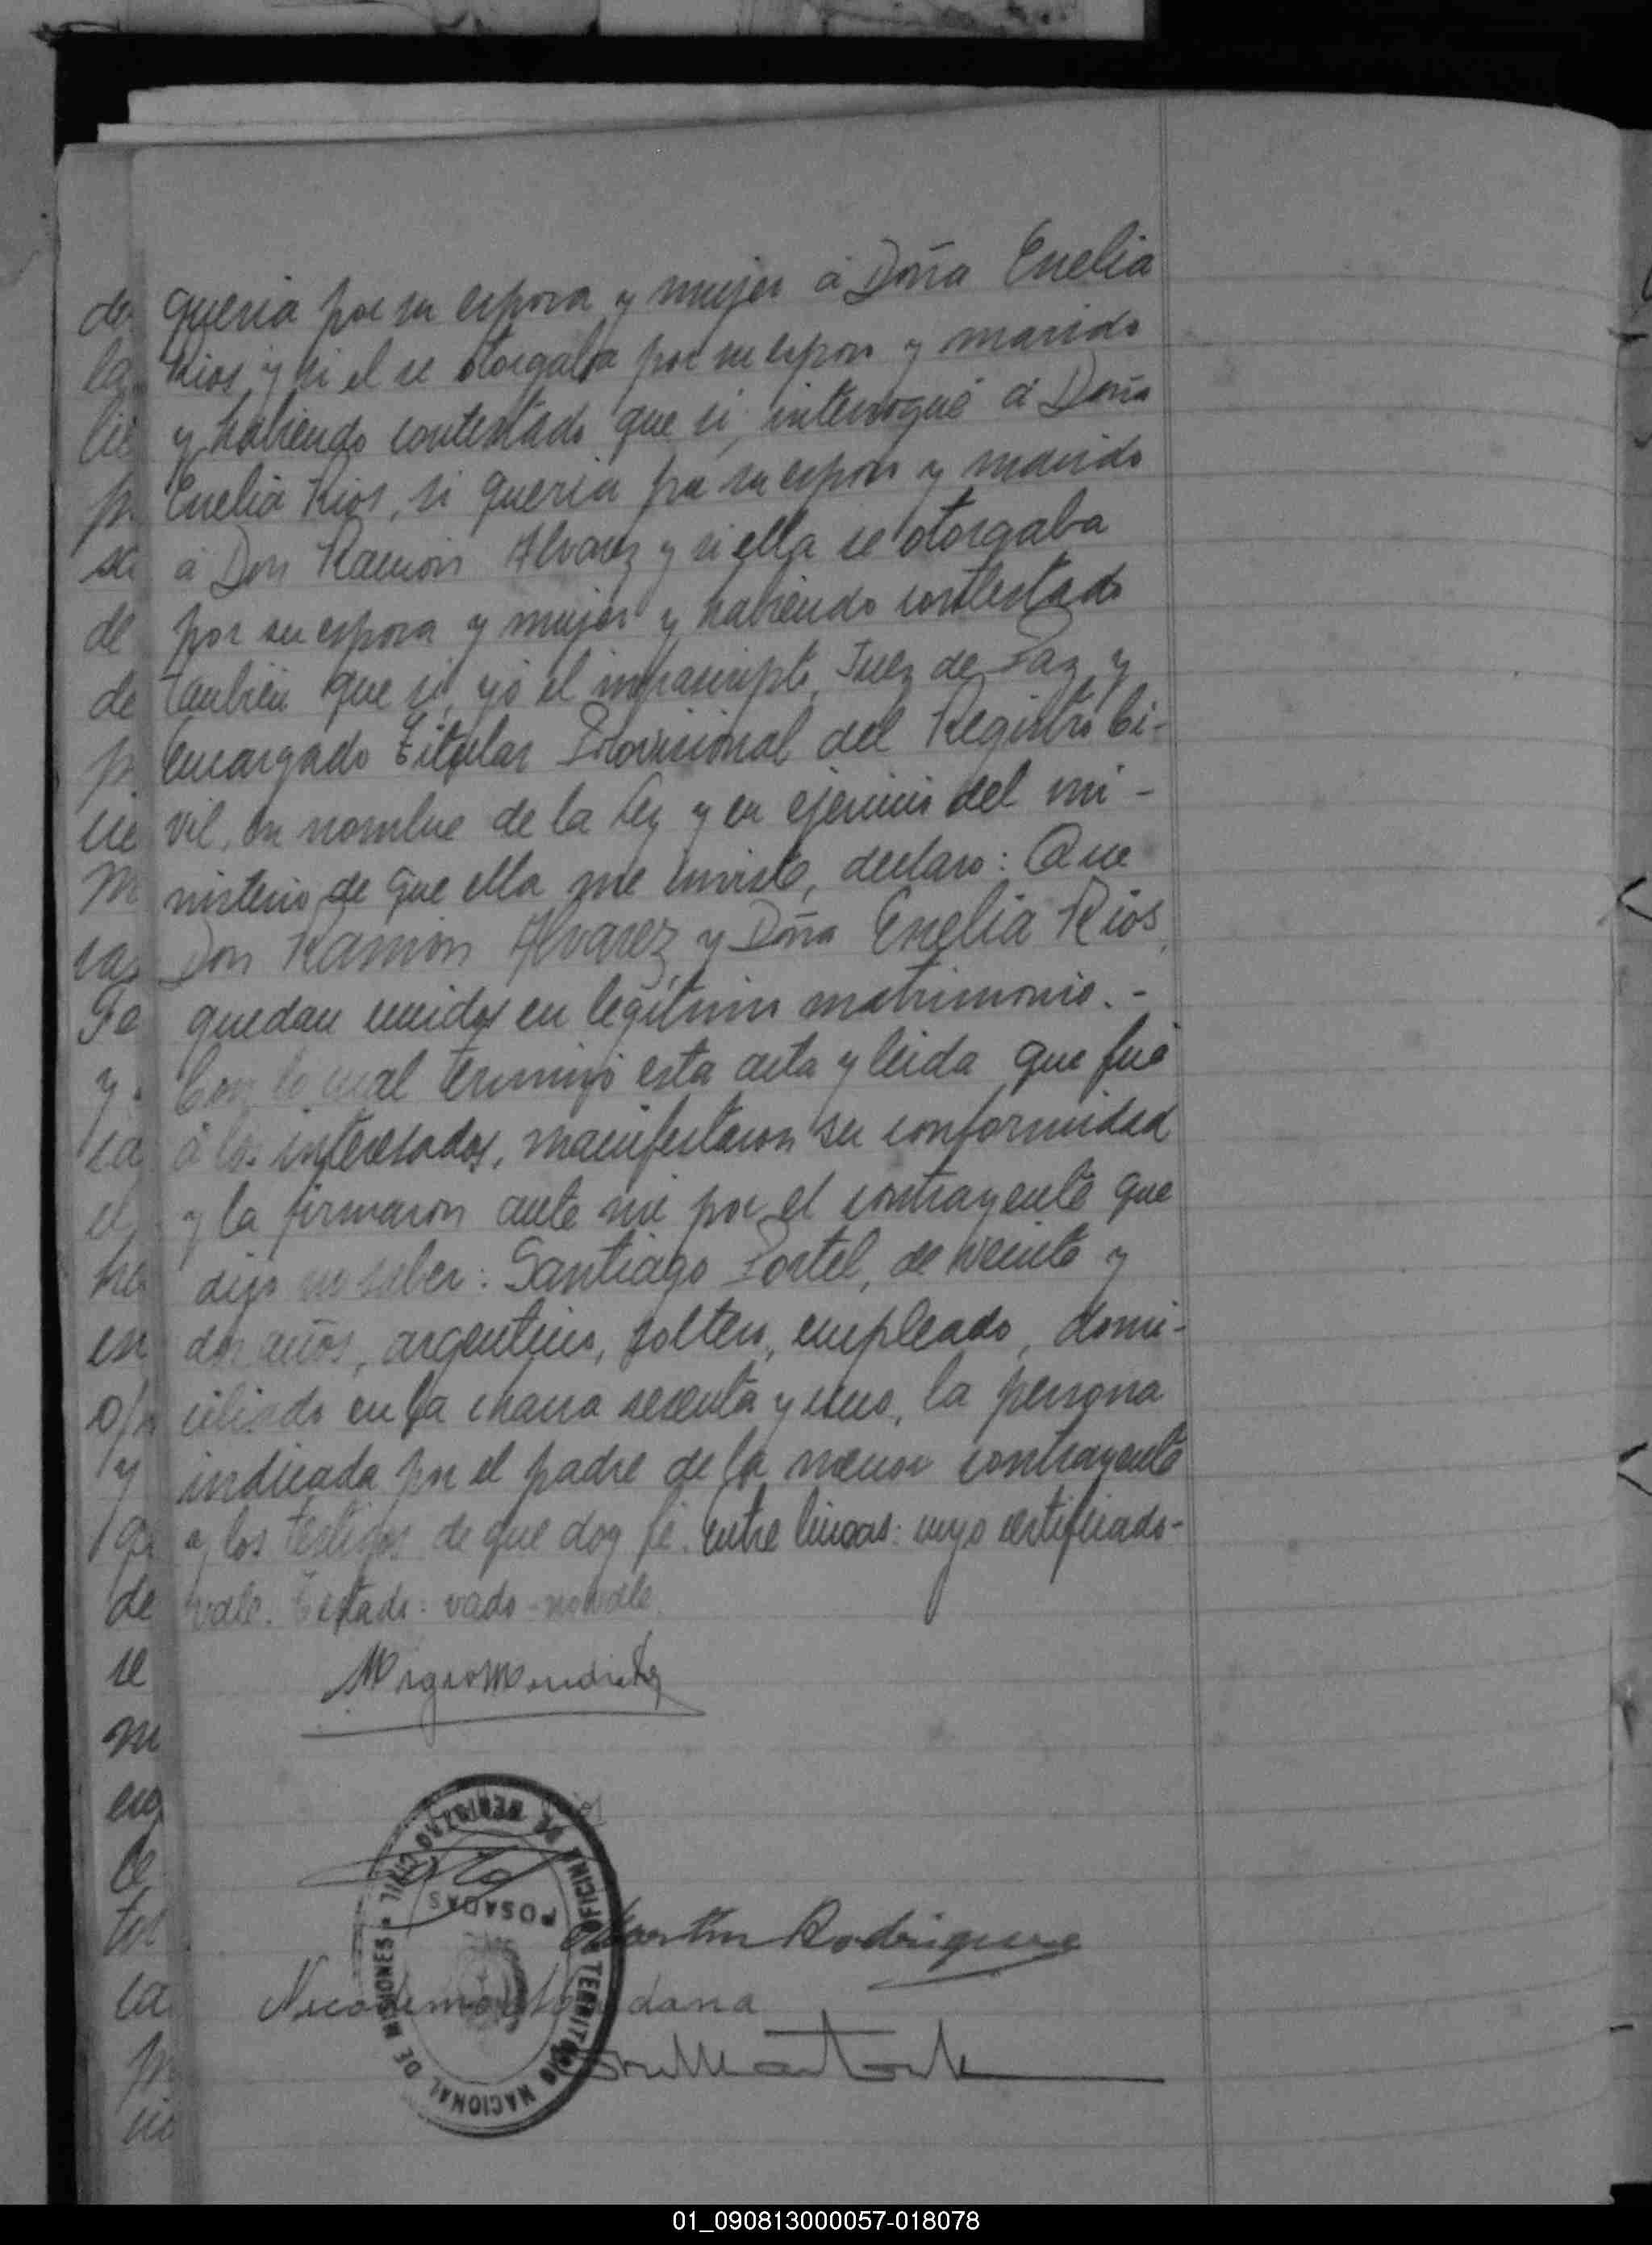 queria por su esposa y mujer á Doña Enelia
Rios, y si el se otorgaba por su esposo y marido
y habiendo contestado que si, interrogué á Doña
Enelia Rios, si queria por su esposo y marido
á Don Ramón Alvarez y si ella se otorgaba
por su esposa y mujer y habiendo contestado
tambien que si, yó el infrascripto, Juez de Paz y
Encargado Titular Provisional del Registro Ci-
vil, en nombre de la Ley y en ejercicio del mi-
nisterio de que ella me inviste, declaro: Que
Don Ramón Alvarez y Doña Enelia Rios,
quedan unidos en legítimo matrimonio.-
Con lo cual terminó esta acta y leida que fué
á los interesados, manifestaron su conformidad
y la firmaron ante mi por el contrayente que
dijo no saber: Santiago Portel, de veinte y
dos años, argentino, soltero, empleado, domi-
ciliado en la chacra sesenta y uno, la persona
indicada por el padre de la menor contrayente
y los testigos de que doy fé. Entre lineas: cuyo certificado-
vale. Testado: vado-no vale.
OFICINA DE REGISTRO CIVIL
POSADAS
TERRITORIO NACIONAL DE MISIONES
Martin Rodriguez
01_090813000057-018078